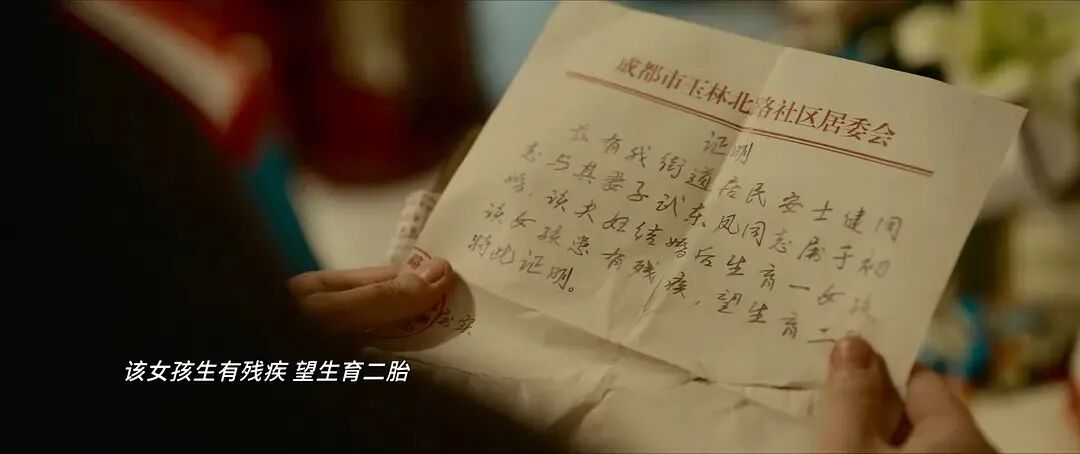 成都市玉林北路社区居委会
证明
兹有我街道居民安士健同
志与其妻子武东凤同志属于初
婚，该夫妇结婚后生育一女孩
该女孩患有残疾，望生育二
特此证明。
该女孩生有残疾 望生育二胎